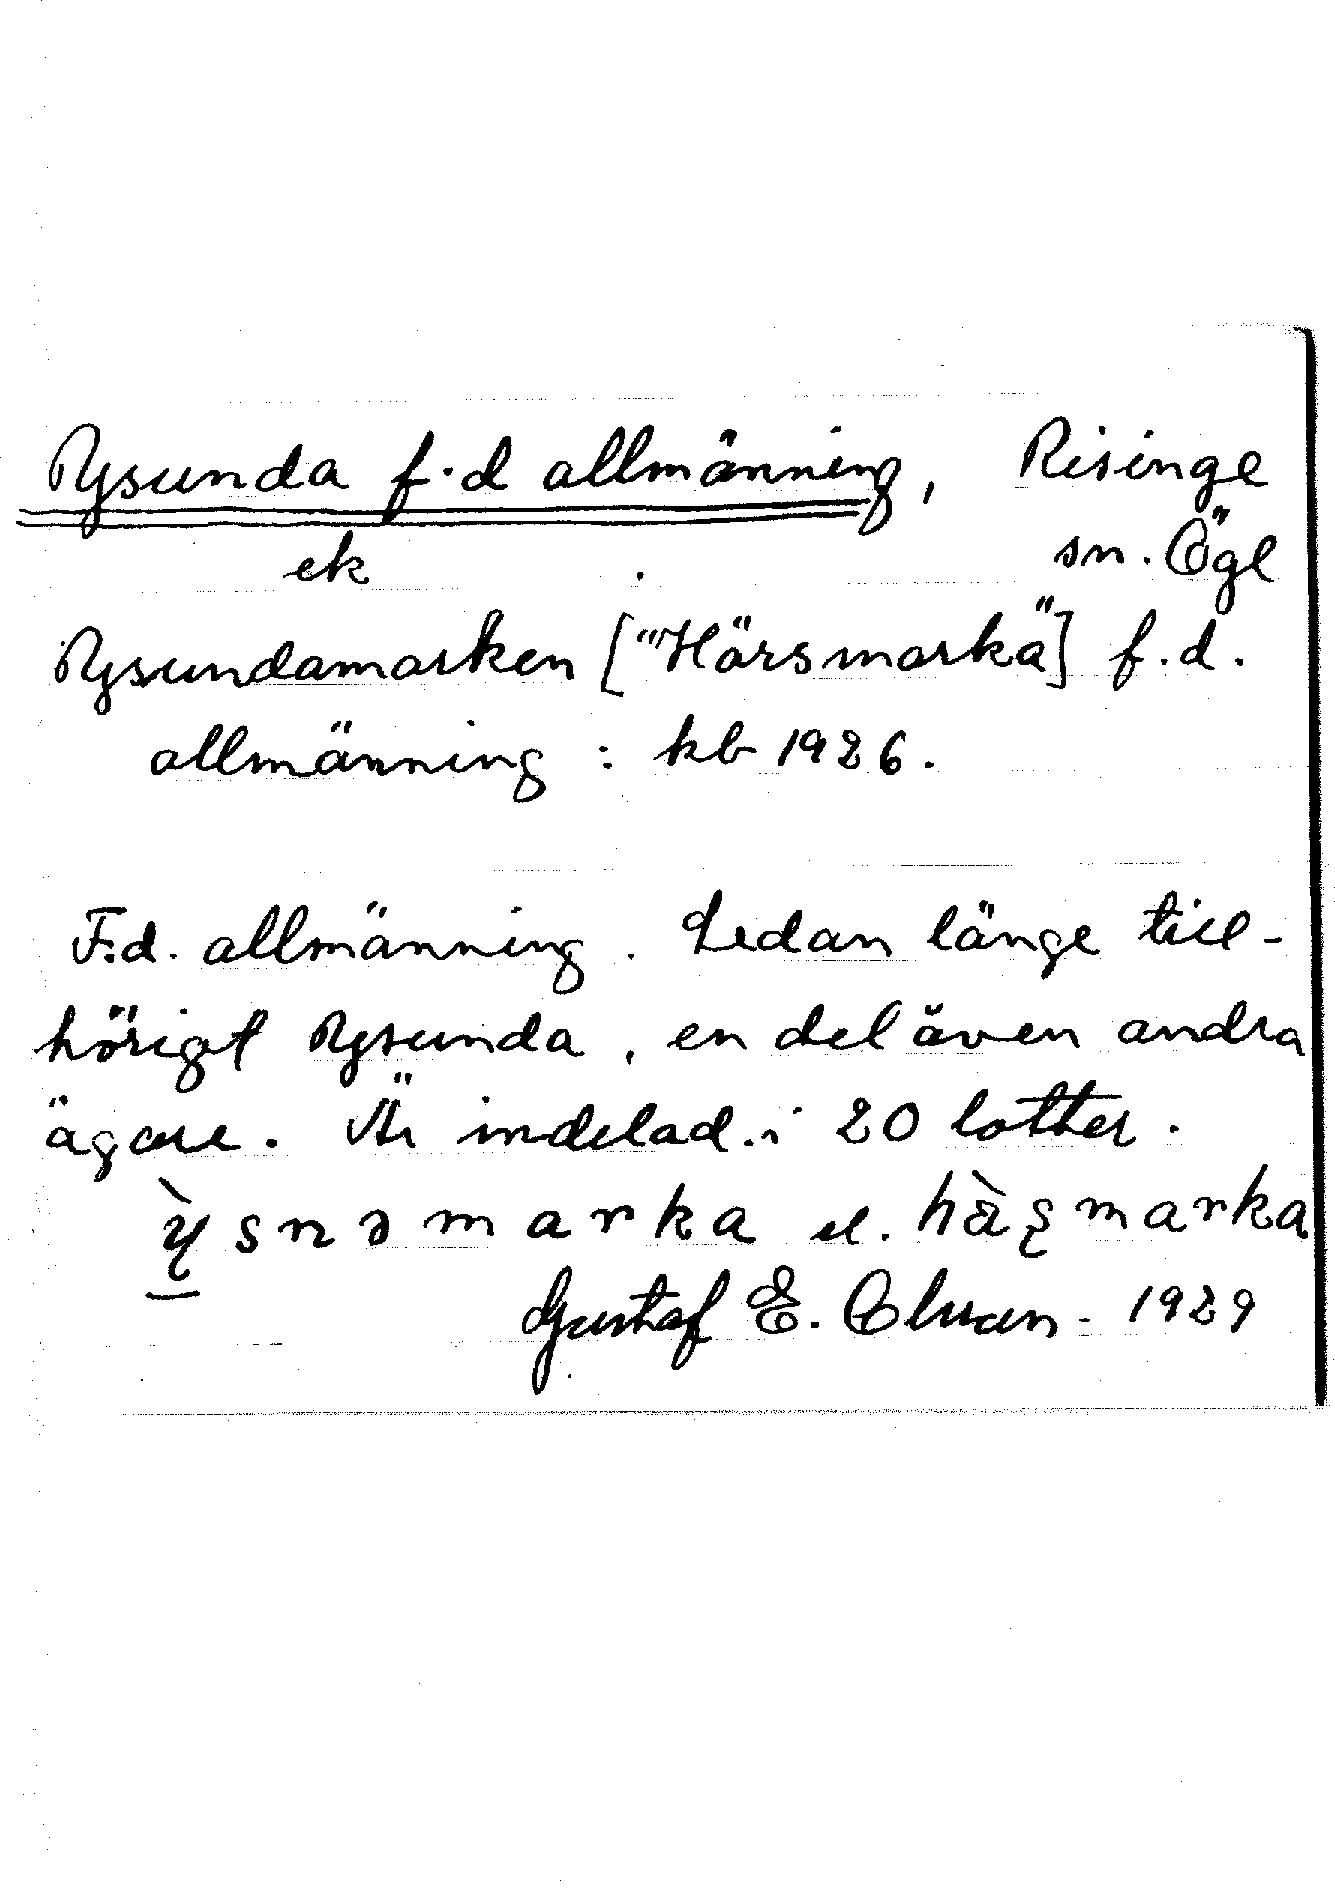 Rysunda f.d allmänning, Risinge
ek sn. Ögl
Rysundamarken ["Härsmarka"] f.d.
allmänning : kb 1926.
F.d. allmänning. Sedan länge till-
hörigt Rysunda, en del även andra
ägare. Är indelad i 20 lotter.
smarka el. marka
Gustaf E. Olsson. 1929